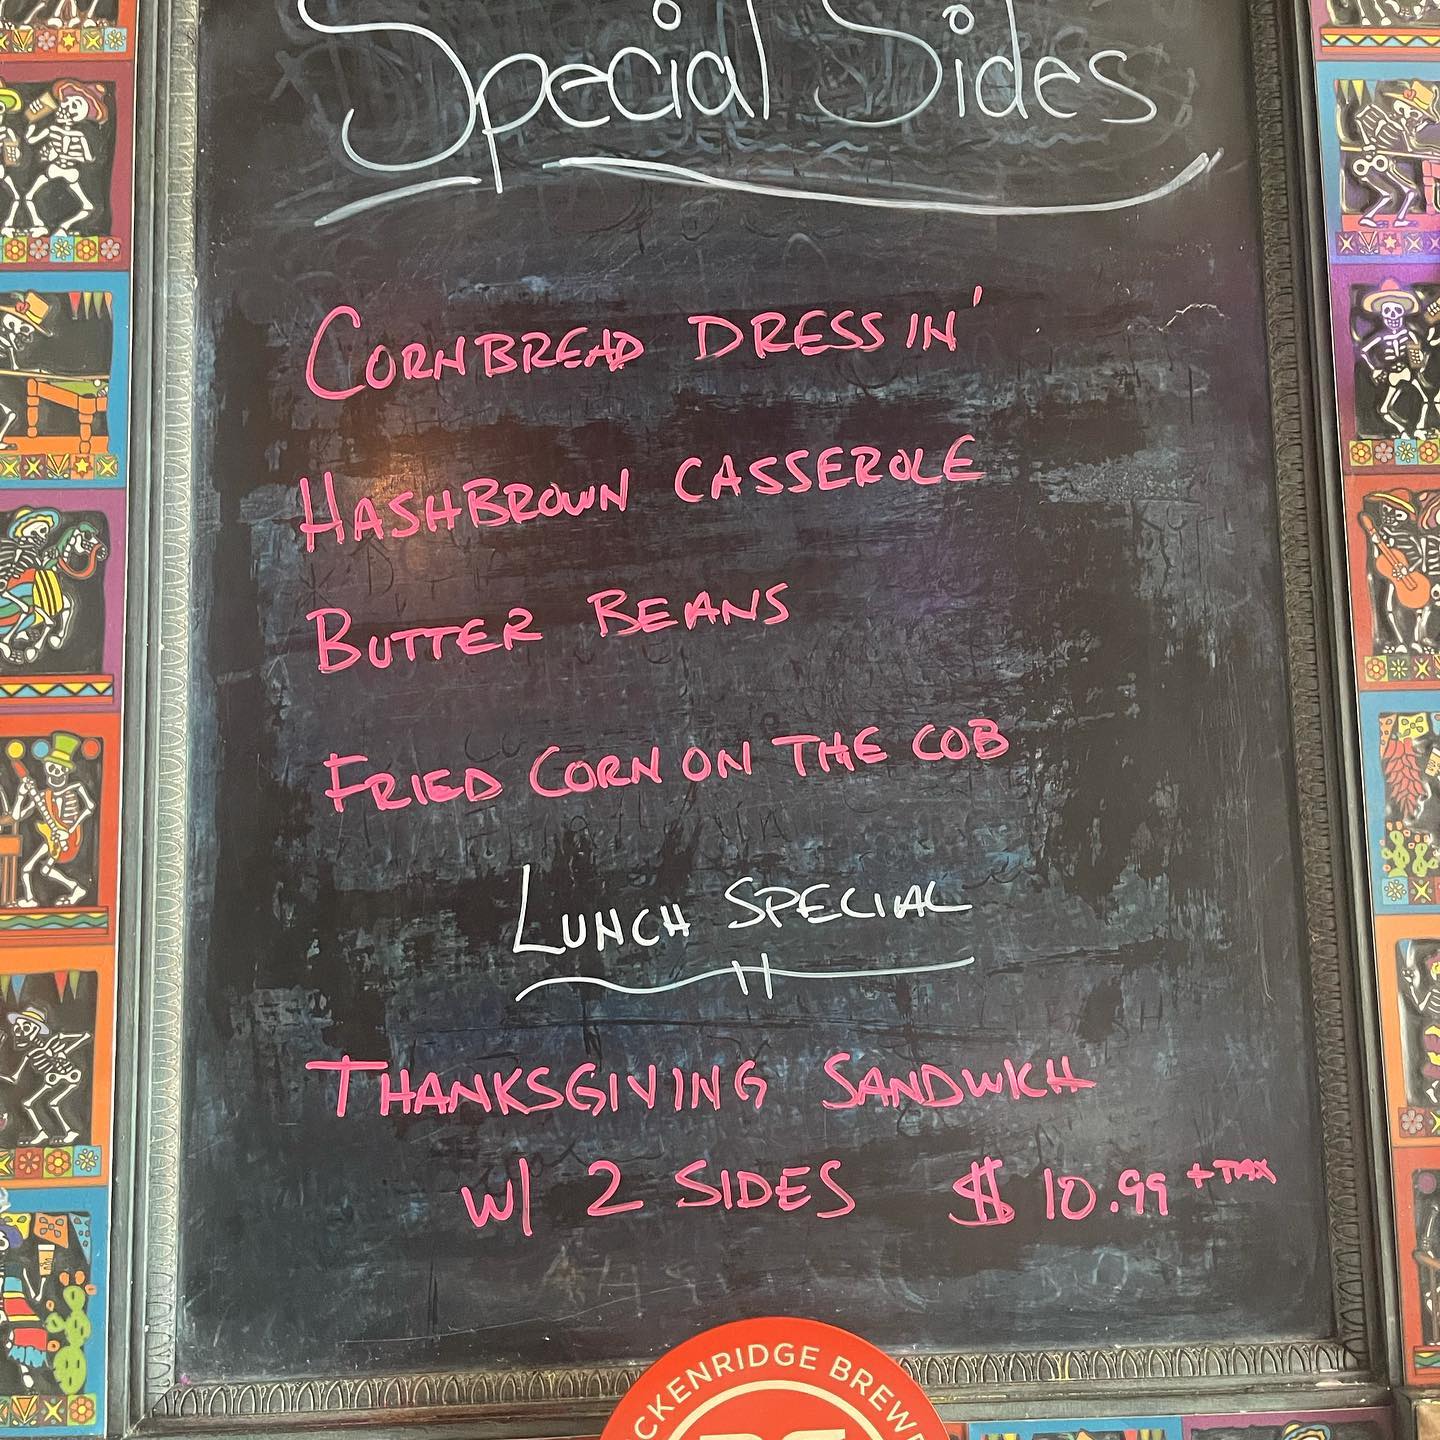 Special Sides
CORNBREAD DRESSIN'
HASHBROWN CASSEROLE
BUTTER BEANS
FRIED CORN ON THE COB
LUNCH SPECIAL
THANKSGIVING SANDWICH
W/ 2 SIDES $10.99 + TAX
CKENRIDGE BREWE